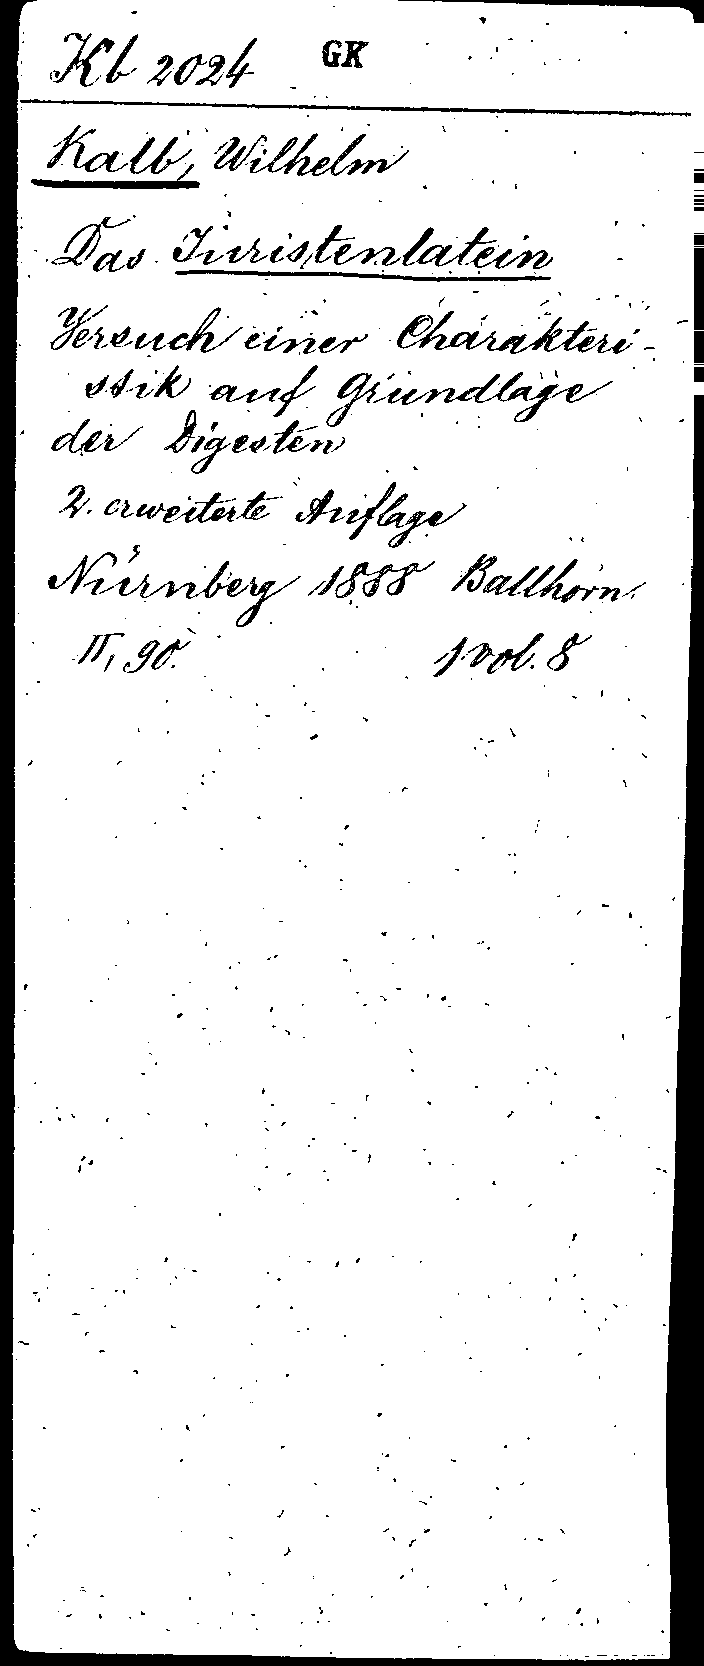 Kb 2024 GK
Kalb, Wilhelm
Das Juristenlatein
Versuch einer Charakteri-
stik auf Grundlage
der Digesten
2. erweiterte Auflage
Nürnberg 1888 Ballhorn.
II, 90. 1 vol. 8